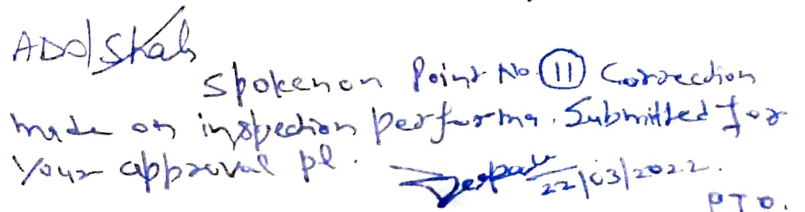 ADO/SKah
Spoken on Point No. 11 Correction
made on inspection performa. Submitted for
your approval pl.
22/03/2022.
PTO.